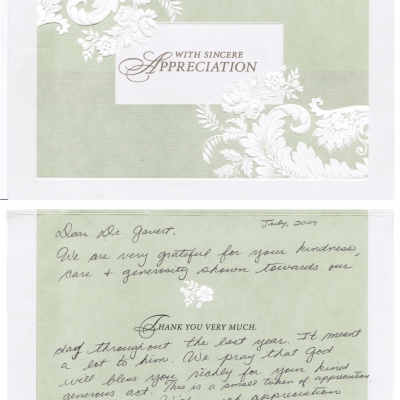 WITH SINCERE
APPRECIATION
July, 2009
Dear Dr. Gavert,
We are very grateful for your kindness,
care + generosity shown towards our
THANK YOU VERY MUCH.
dad throughout the last year. It meant
a lot to him. We pray that God
will bless you richly for your kind
generous act. This is a small token of appreciation.
With much appreciation